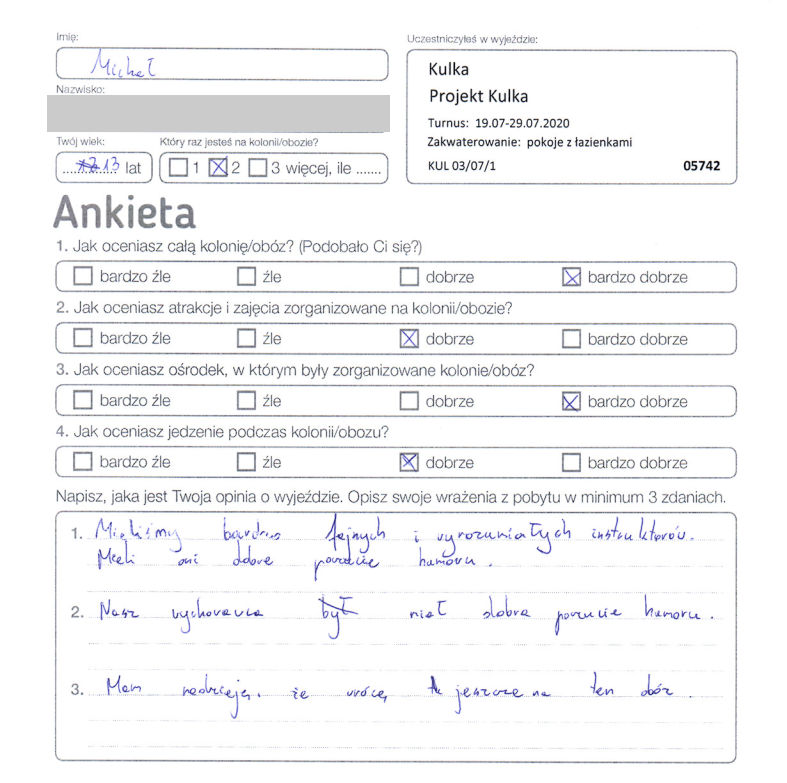 Imię:
Michał
Nazwisko:
Twój wiek:
13 lat
Który raz jesteś na kolonii/obozie?
1 2 3 więcej, ile .......
Uczestniczyłeś w wyjeździe:
Kulka
Projekt Kulka
Turnus: 19.07-29.07.2020
Zakwaterowanie: pokoje z łazienkami
KUL 03/07/1 05742
Ankieta
1. Jak oceniasz całą kolonię/obóz? (Podobało Ci się?)
bardzo źle źle dobrze bardzo dobrze
2. Jak oceniasz atrakcje i zajęcia zorganizowane na kolonii/obozie?
bardzo źle źle dobrze bardzo dobrze
3. Jak oceniasz ośrodek, w którym były zorganizowane kolonie/obóz?
bardzo źle źle dobrze bardzo dobrze
4. Jak oceniasz jedzenie podczas kolonii/obozu?
bardzo źle źle dobrze bardzo dobrze
Napisz, jaka jest Twoja opinia o wyjeździe. Opisz swoje wrażenia z pobytu w minimum 3 zdaniach.
1. Mieliśmy bardzo fajnych i wyrozumiałych instruktorów.
Mieli oni dobre poczucie humoru.
2. Nasz wychowawca był miał dobre poczucie humoru.
3. Mam nadzieję, że wrócę jeszcze na ten obóz.